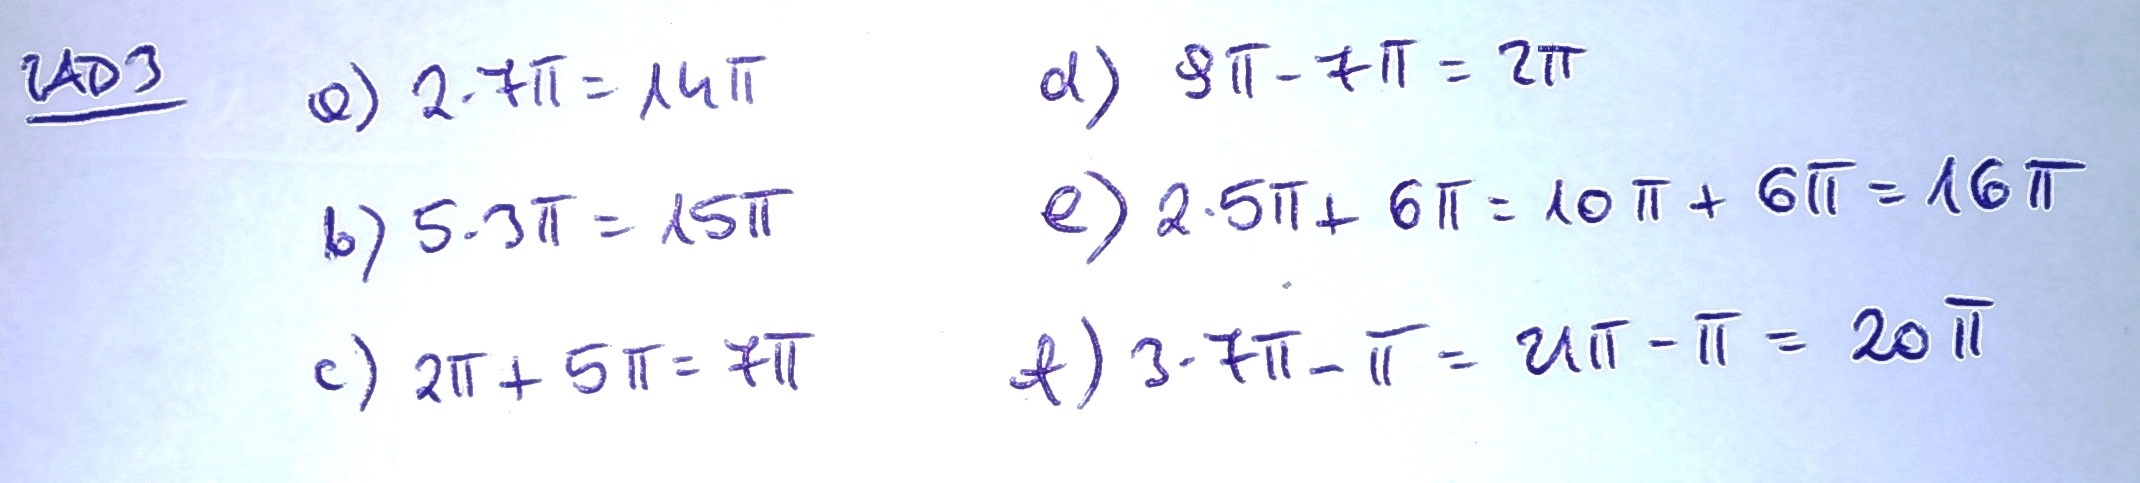 ZAD 3
a) 2·7π = 14π
b) 5·3π = 15π
c) 2π + 5π = 7π
d) 9π - 7π = 2π
e) 2·5π + 6π = 10π + 6π = 16π
f) 3·7π - π = 21π - π = 20π